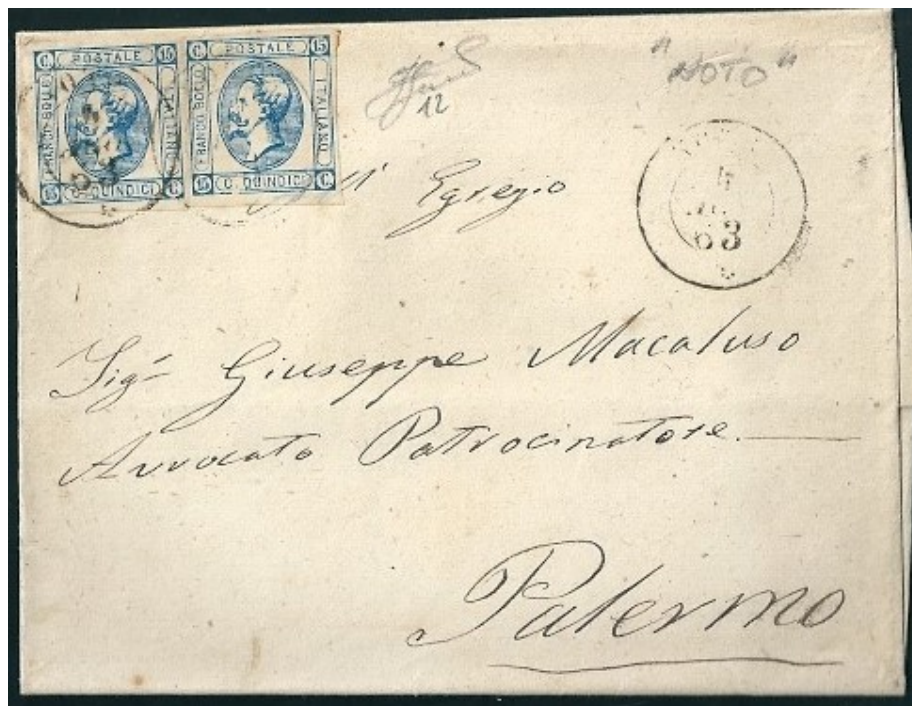 C. POSTALE 15
FRANCO BOLLO
ITALIANO
15 C. QUINDICI C.
C. POSTALE 15
FRANCO BOLLO
ITALIANO
15 C. QUINDICI C.
12
" NOTO "
63
Egregio
Sigr Giuseppe Macaluso
Avvocato Patrocinatore
Palermo